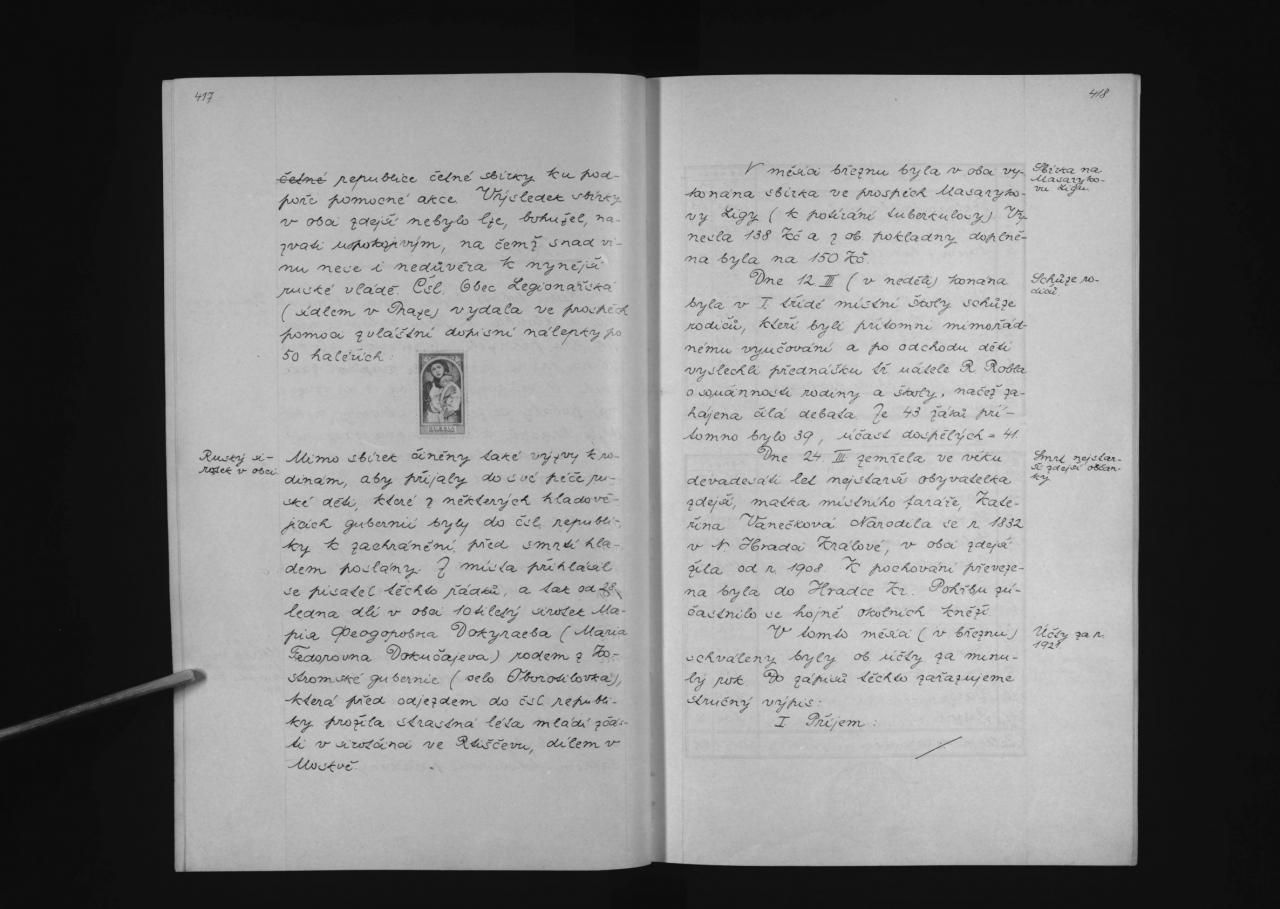 417
četné republice četné sbírky ku pod-
poře pomocné akce. Výsledek sbírky
v obci zdejší nebylo lze, bohužel, na-
zvati uspokojivým, na čemž snad vi-
nu nese i nedůvěra k nynější
ruské vládě. Čsl. Obec Legionářská
(sídlem v Praze) vydala ve prospěch
pomoci zvláštní dopisní nálepky po
50 haléřích:
Ruský si-
rotek v obci
Mimo sbírek činěny také výzvy k ro-
dinám, aby přijaly do své péče ru-
ské děti, které z některých hladově-
jících gubernií byly do čsl. republi-
ky k zachránění před smrtí hla-
dem poslány. Z místa přihlásil
se pisatel těchto řádků, a tak od 28.
ledna dlí v obci 10tiletý sirotek Ма-
рія Феодоровна Докучаева (Maria
Fedorovna Dokučajeva) rodem z Ko-
stromské gubernie (selo
která před odjezdem do čsl. republi-
ky prožila strastná léta mládí zčás-
ti v sirotčinci ve Rtiščevu, dílem v
Moskvě.
418
V měsíci březnu byla v obci vy-
konána sbírka ve prospěch Masaryko-
vy Ligy (k potírání tuberkulosy). Vy-
nesla 138 Kč a z ob. pokladny doplně-
na byla na 150 Kč.
Sbírka na
Masaryko-
vu Ligu.
Dne 12. III. (v neděli) konána
byla v I. třídě místní školy schůze
rodičů, kteří byli přítomni mimořád-
nému vyučování a po odchodu dětí
vyslechli přednášku tř. učitele R. Róbla
o součinnosti rodiny a školy, načež za-
hájena čilá debata. Ze 43 žáků pří-
tomno bylo 39, účast dospělých = 41.
Schůze ro-
dičů
Dne 24. III. zemřela ve věku
devadesáti let nejstarší obyvatelka
zdejší, matka místního faráře, Kate-
řina Vanečková. Narodila se r. 1832
v N. Hradci Králové, v obci zdejší
žila od r. 1908. K pochování převeze-
na byla do Hradce Kr. Pohřbu zú-
častnilo se hojně okolních kněží.
Smrt nejstar-
ší zdejší občan-
ky
V tomto měsíci (v březnu)
schváleny byly ob. účty za minu-
lý rok. Do zápisů těchto zařazujeme
stručný výpis:
I. Příjem:
Účty za r.
1921.